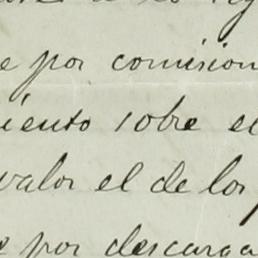 e por comision
iento sobre el
valor el de los
e por descarga